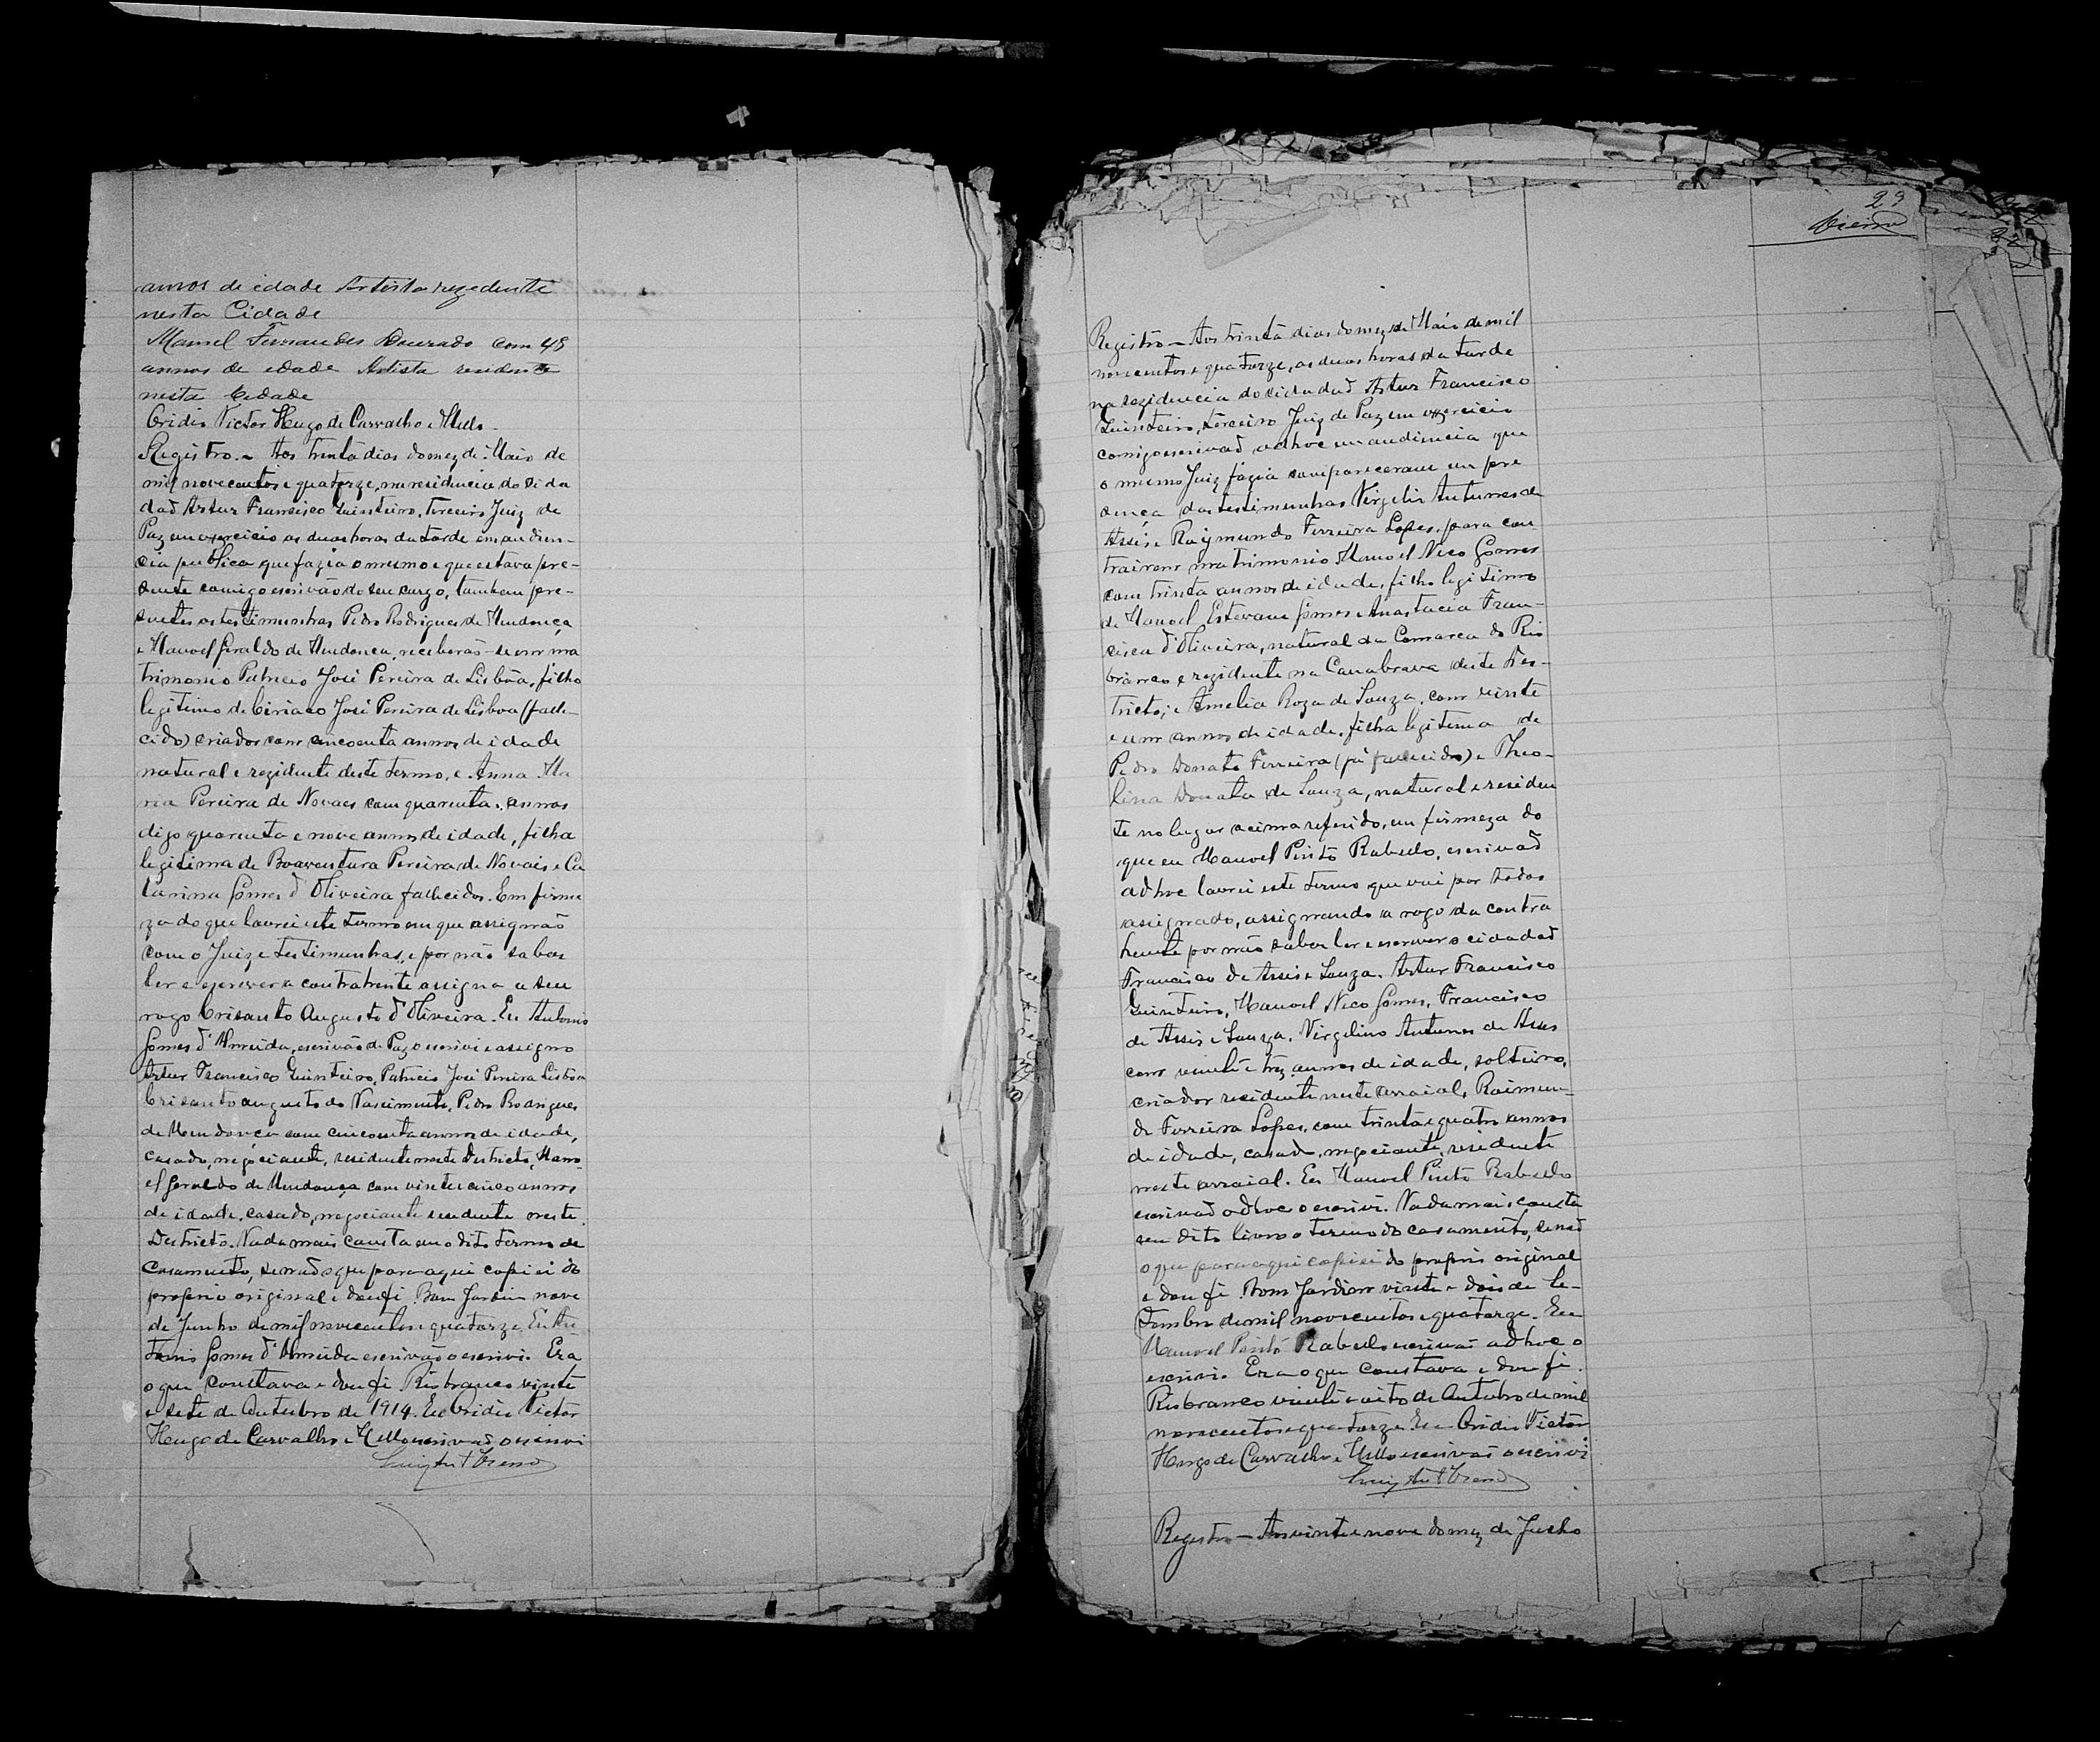 annos de idade Artista rezedente
nesta Cidade
Manoel Fernandes Dourado com 48
annos de edade Artista residente
nesta Cidade
Ovidio Victor Hugo de Carvalho e Mello
Registro.- Aos trinta dias do mez de Maio de
mil novecentos e quatorze, na residencia do cida
dão Artur Francisco Quinteiro, terceiro Juiz de
Paz em exercicio as duas horas da tarde em audien-
cia publica que fazia o mesmo e que estava pre-
sente comigo escrivão do seu cargo, tambem pre-
sentes as testimunhas Pedro Rodrigues de Mendonça
e Manoel Geraldo de Mendonca, receberão-se em ma
trimonio Patricio José Pereira de Lisbôa, filho
legitimo de Ciriaco José Pereira de Lisboa (falle-
cido) criador com cincoenta annos de idade
natural e rezidente deste termo, e Anna Ma
ria Pereira de Novaes com quarenta annos
digo quarenta e nove annos de idade, filha
legitima de Boaventura Pereira de Novais e Ca
tarina Gomes d'Oliveira fallecidos. Em firme
za do que lavrei este termo em que assignão
com o Juiz e testimunhas, e por não saber
ler e escrever a contratrente assigna a seu
rogo Crisanto Augusto d'Oliveira. Eu Antonio
Gomes d'Almeida, escrivão de Paz o escrivi e assigno
Artur Francisco Quinteiro, Patricio José Pereira Lisboa
Crisanto augusto do Nascimento, Pedro Rodrigues
de Mendonça com cincoenta annos de idade,
casado, negociante, residente neste Districto, Mano
el Geraldo de Mendonça com vinte e cinco annos
de idade, casado, negociante residente neste
Destricto. Nada mais consta em o dito termo de
casamento, senão o que para aqui copiei do
proprio original e dou fé. Bom Jardim nove
de Junho de mil novecentos e quatorze. Eu An-
tonio Gomes d'Almeida escrivão o escrivi. Era
o que constava e dou fé. Rio branco vinte
e sete de Outubro de 1914. Eu Ovidio Victor
Hugo de Carvalho e Mello escrivão o escrivi
23
Registro - Aos trinta dias do mez de Maio de mil
novecentos e quatorze, as duas horas da tarde
na rezidencia do cidadão Artur Francisco
Quinteiro, terceiro Juiz de Paz em exercicio
comigo escrivão adhoc em audiencia que
o mesmo Juiz fazia compareceram em pre
sença das testimunhas Virgelio Antunes de
Assis e Raymundo Ferreira Lopes, para con
trairem matrimonio Manoel Neco Gomes
com trinta annos de idade, filho legitimo
de Manoel Estevam Gomes e Anastacia Fran-
cisca d'Oliveira, natural da Comarca do Rio
branco e rezidente na Canabrava deste Des-
tricto; e Amelia Roza de Souza, com vinte
e um annos de idade, filha legitima de
Pedro Donato Ferreira (já fallecido) e Theo-
lina Donata de Souza, natural e residen
te no lugar acima referido, em firmeza do
que eu Manoel Pinto Rabello, escrivão
adhoc lavrei este termo que vai por todos
assignado, assignando a rogo da contra
hente por não saber ler e escrever o cidadão
Francisco de Assis e Souza. Artur Francisco
Quinteiro, Manoel Neco Gomes, Francisco
de Assis e Souza. Virgelino Antunes de Assis
com vinte e trez annos de idade, solteiro,
criador residente neste arraial, Raimun-
do Ferreira Lopes, com trinta e quatro annos
de idade, casado, negociante, residente
neste arraial. Eu Manoel Pinto Rabello
escrivão adhoc o escrivi. Nada mais consta
em dito livro o termo do casamento, senão
o que para aqui copiei do proprio original
e dou fé. Bom Jardim vinte e dois de Se-
tembro de mil novecentos e quatorze. Eu
Manoel Pinto Rabello escrivão adhoc o
escrivi. Era o que constava e dou fé.
Rio branco vinte e oito de Outubro de mil
novecentos e quatorze. Eu Ovidio Victor
Hugo de Carvalho e Mello escrivão o escrivi
Registro - Aos vinte e nove do mez de Julho